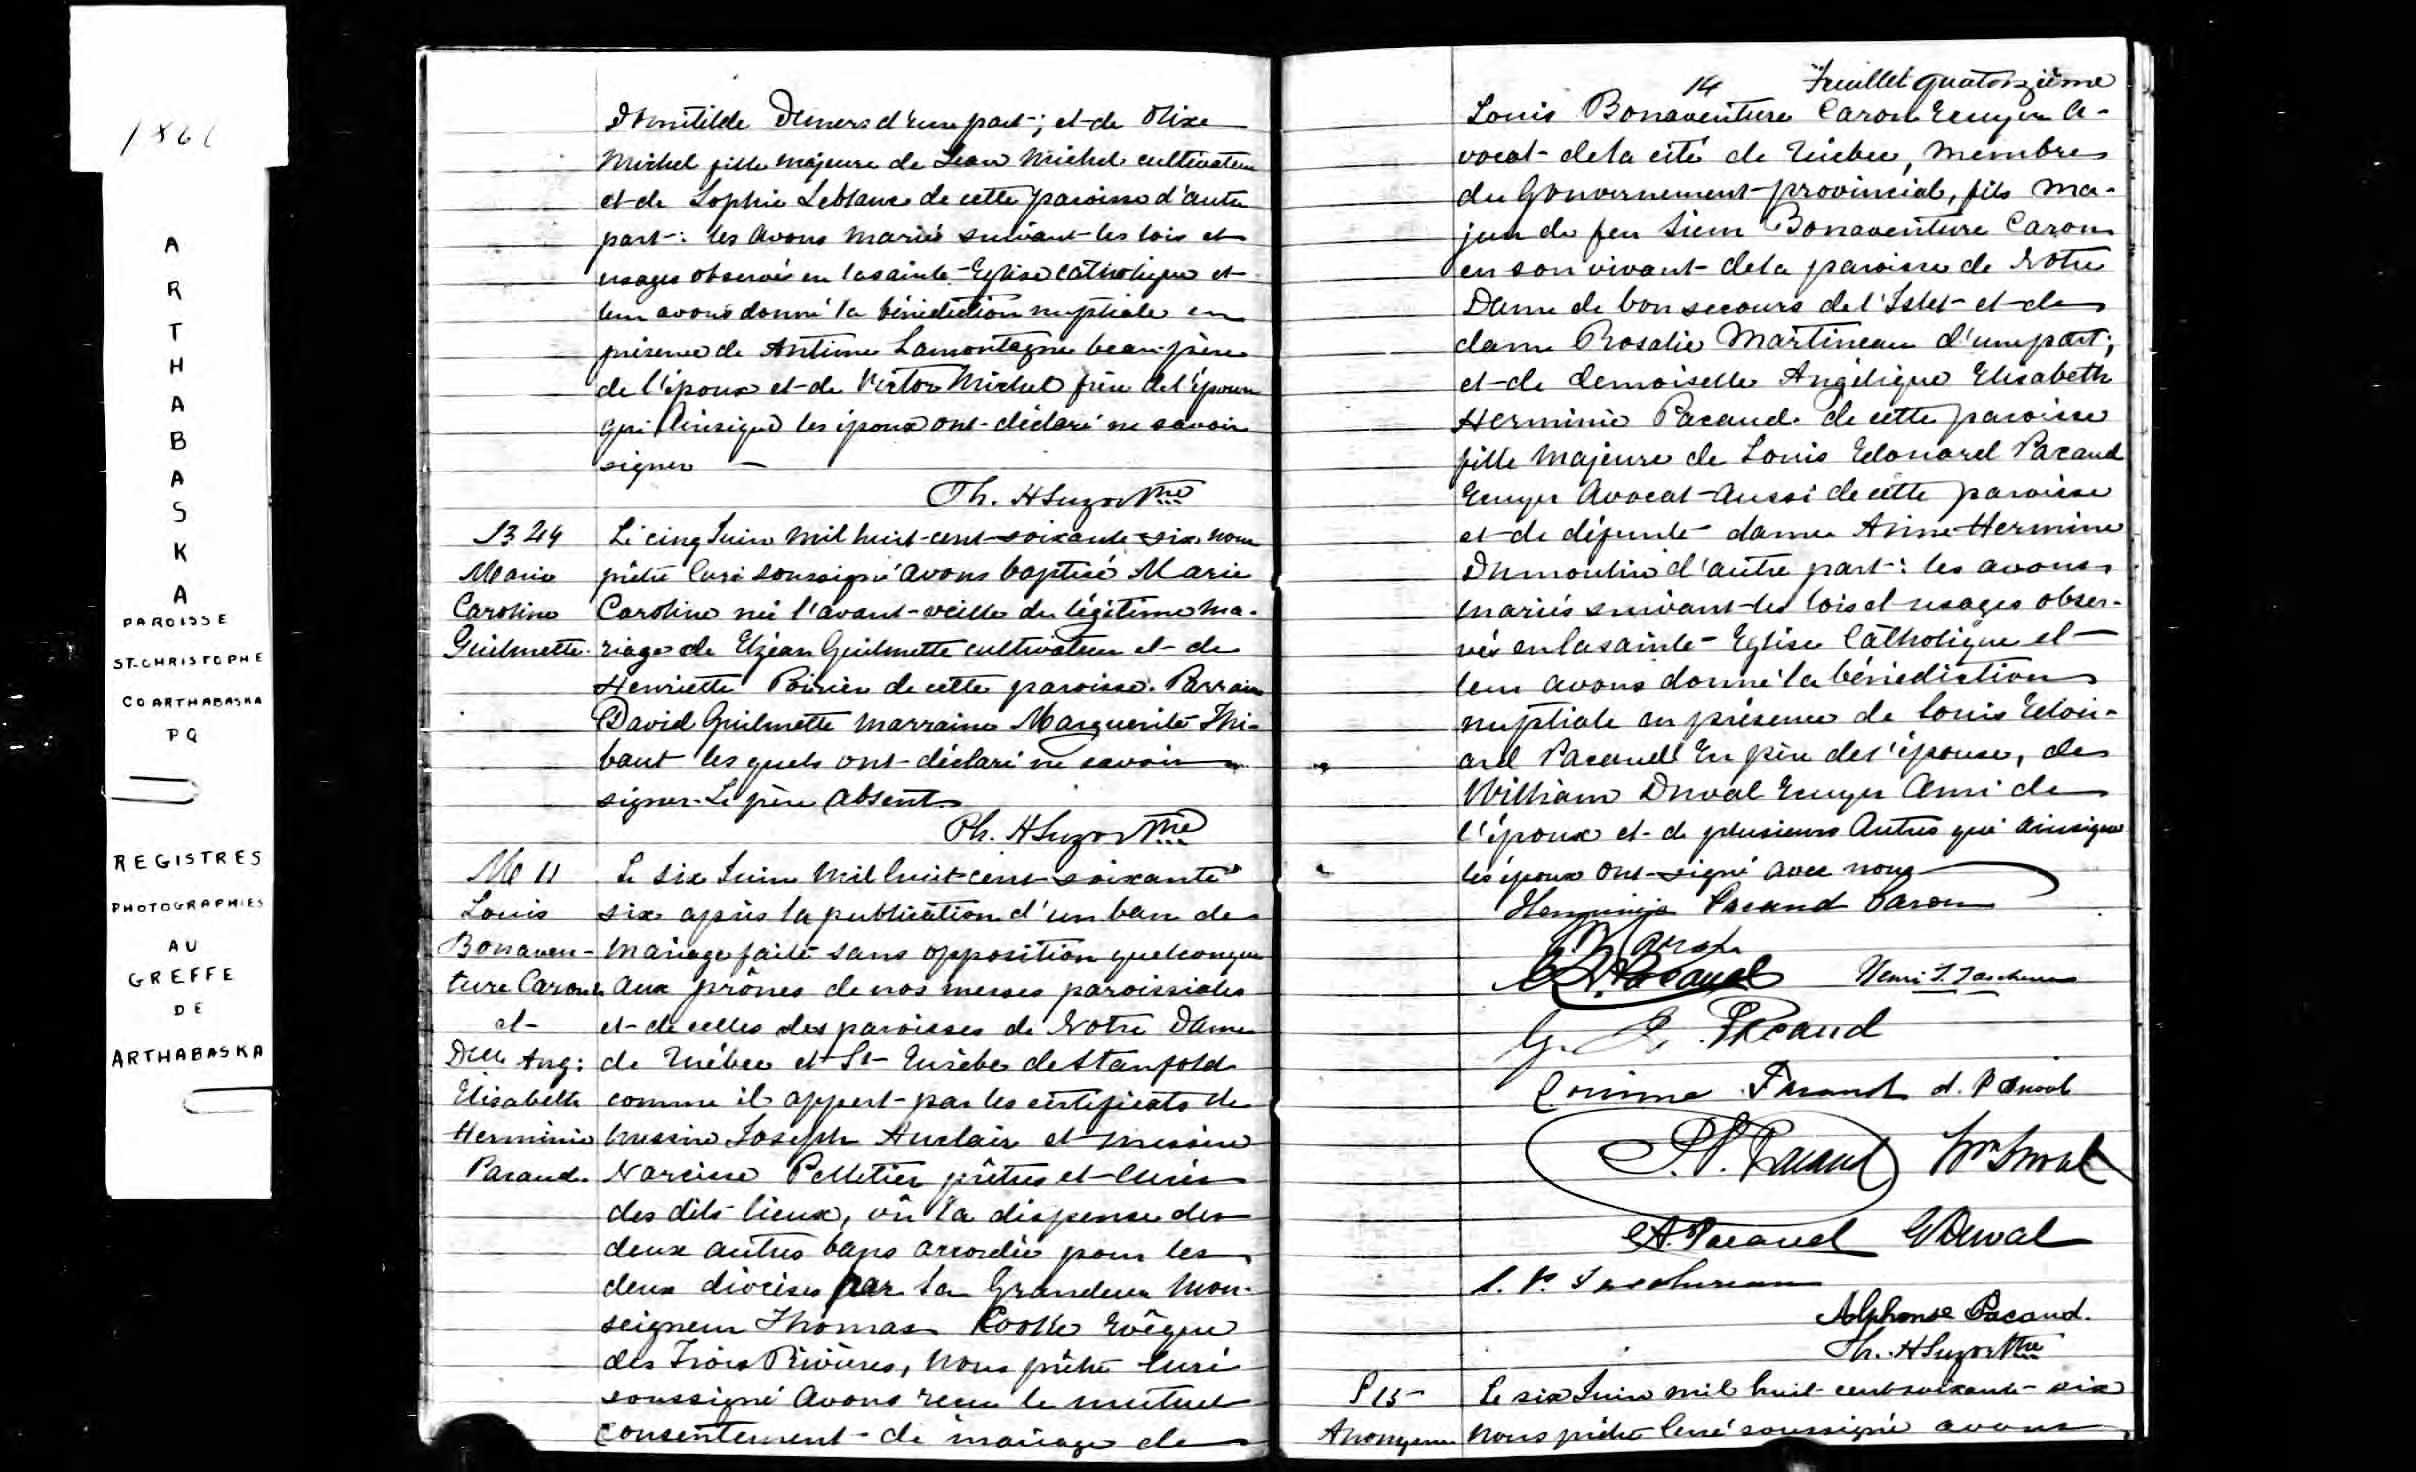 1866
ARTHABASKA
PAROISSE
ST-CHRISTOPHE
CO ARTHABASKA
PQ
REGISTRES
PHOTOGRAPHIES
AU
GREFFE
DE
ARTHABASKA
Domitilde Demers d'une part; et de Olixe
Michel fille majeure de Jean Michel cultivateur
et de Sophie Leblanc de cette paroisse d'autre
part: les avons mariés suivant les lois et
usages observés en la sainte Eglise catholique et
leur avons donné la bénédiction nuptiale en
présence de Antime Lamontagne beau-père
de l'époux et de Victor Michel frère de l'épouse
qui ainsique les époux ont déclaré ne savoir
signer
Th. H Suzor Ptre
B 24 Le cinq Juin mil huit-cent-soixante-six nous
Marie prêtre Curé soussigné avons baptisé Marie
Caroline Caroline née l'avant-veille du légitime ma-
Guilmette. riage de Elzéar Guilmette cultivateur et de
Henriette Poirier de cette paroisse. Parrain
David Guilmette marraine Marguerite Thi-
baut lesquels ont déclaré ne savoir
signer. Le père absent
Th. H Suzor Ptre
M 11 Le six Juin mil huit-cent-soixante
Louis six après la publication d'un ban de
Bonaven- mariage faite sans opposition quelconque
ture Caron aux prônes de nos messes paroissiales
et et de celles des paroisses de Notre Dame
Dlle Ang: de Québec et St Eusèbe de Stanfold
Elisabeth comme il appert par les certificats de
Herminie messire Joseph Auclair et messire
Pacaud. Narcisse Pelletier prêtres et Curés
des dits lieux, vû la dispense des
deux autres bans accordée pour les
deux diocèses par Sa Grandeur Mon-
seigneur Thomas Cooke Evêque
des Trois Rivières, Nous prêtre Curé
soussigné avons reçu le mutuel
consentement de mariage de
14 Feuillet quatorzième
Louis Bonaventure Caron Ecuyer A-
vocat de la cité de Québec, membre
du Gouvernement provincial, fils ma-
jeur de feu Sieur Bonaventure Caron
en son vivant de la paroisse de Notre
Dame de bon secours de l'Islet et de
dame Rosalie Martineau d'une part;
et de demoiselle Angélique Elisabeth
Herminie Pacaud de cette paroisse
fille majeure de Louis Edouard Pacaud
Ecuyer Avocat aussi de cette paroisse
et de défunte dame Anne Hermine
Dumoulin d'autre part: les avons
mariés suivant les lois et usages obser-
vés en la sainte Eglise Catholique et
leur avons donné la bénédiction
nuptiale en présence de Louis Edou-
ard Pacaud Er père de l'épouse, de
William Duval Ecuyer Ami de
l'époux et de plusieurs Autres qui ainsique
les époux ont signé avec nous
Herminie Pacaud Caron
L. B Caron
E L Pacaud Henri T. Taschereau
G. E. Pacaud
Corinne Pacaud d. P Duval
P. N. Pacaud Wm Duval
A. Pacaud G Duval
L. P. Taschereau
Alphonse Pacaud.
Th. H Suzor Ptre
S 15 Le six Juin mil huit cent soixante-six
Anonyme Nous prêtre Curé soussigné avons